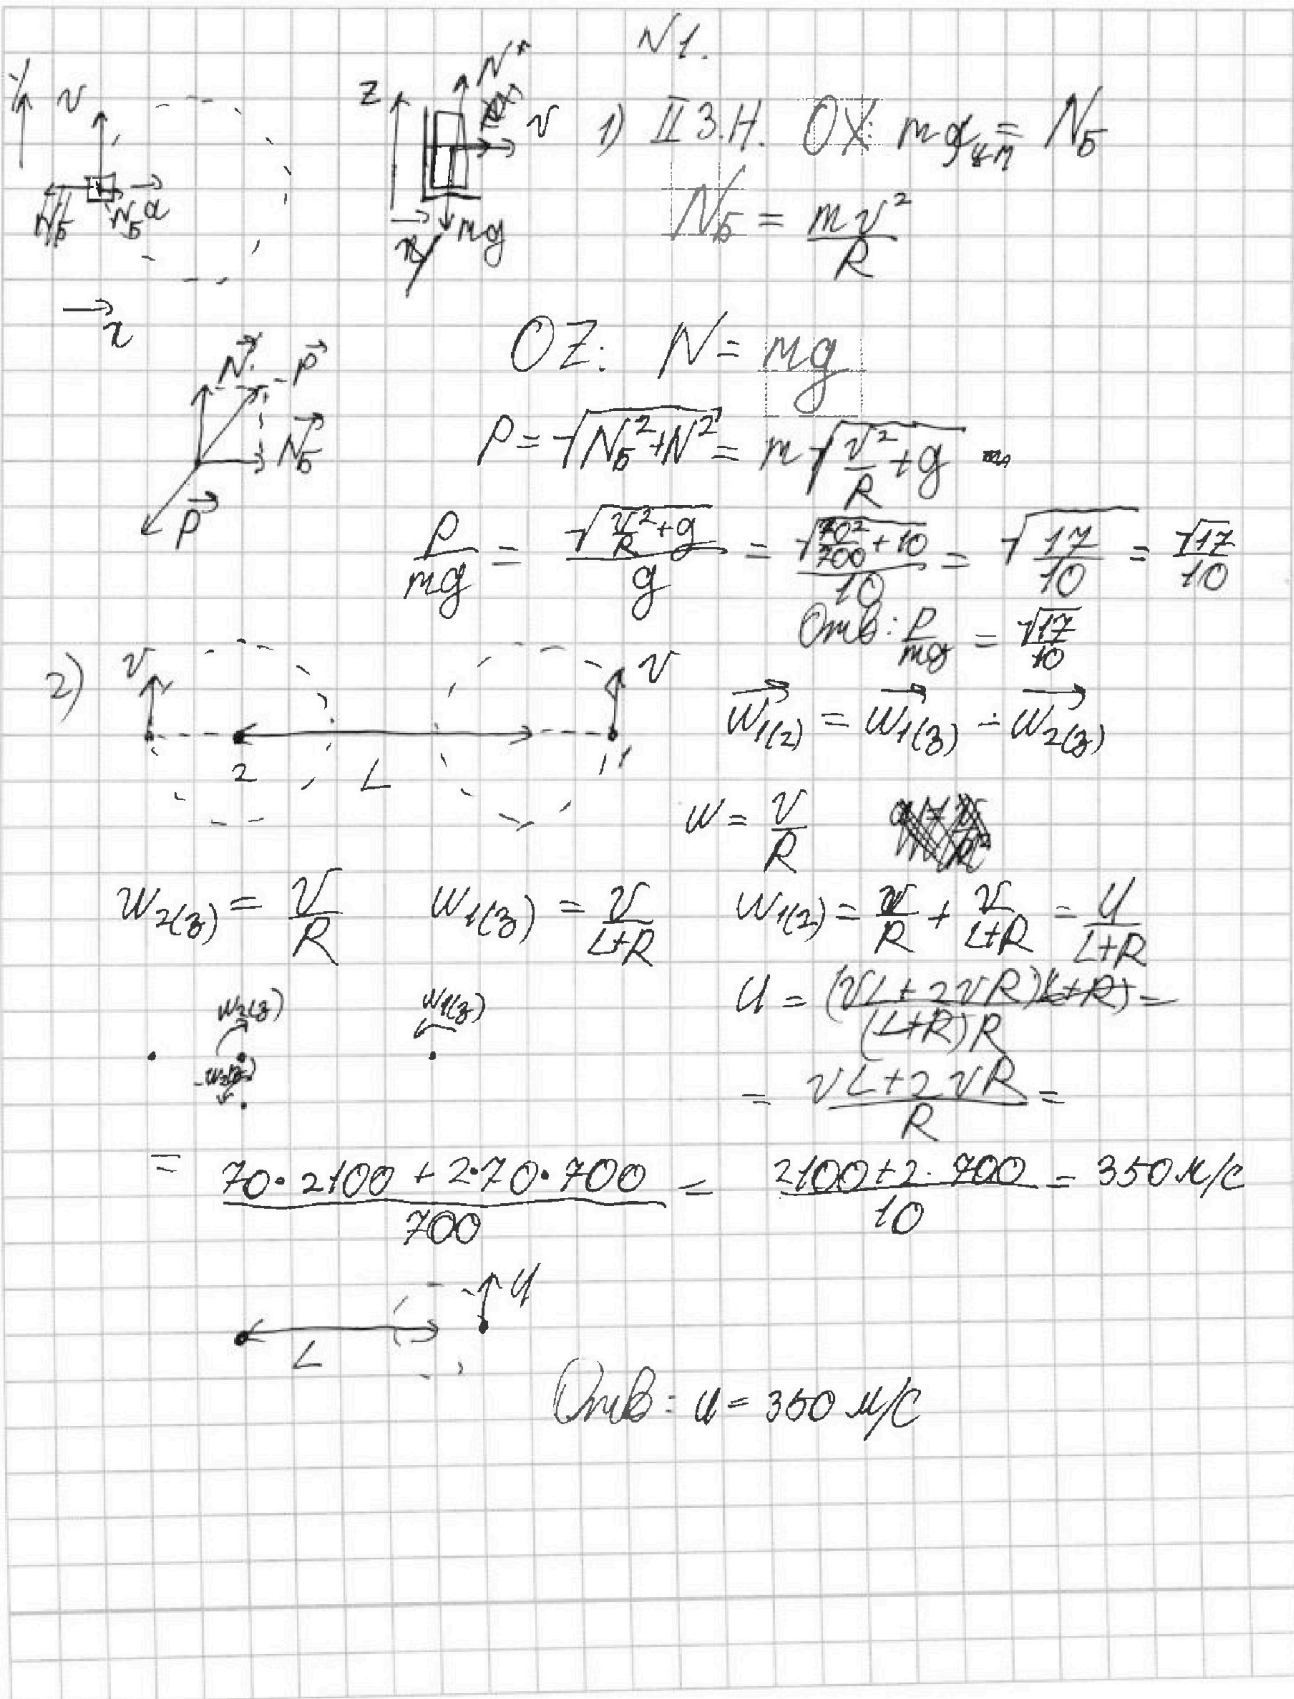 N1.
y v
z N v
1) II З.Н. OX: ma_цп = N_Б
N_Б a
mg
N_Б = mv²/R
x
OZ: N = mg
N P
N_Б
P
P = √(N_Б² + N²) = m√(v²/R + g)
P/mg = √(v²/R + g)/g = √(70²/700 + 10)/10 = √(17/10) = √17/10
Отв: P/mg = √17/10
2) v v
2 L 1
w_1(2) = w_1(з) - w_2(з)
w = v/R
w_2(з) = v/R w_1(з) = v/(L+R) w_1(2) = v/R + v/(L+R) = U/(L+R)
w_2(з) w_1(з)
-w_2(з)
U = (vL + 2vR)(L+R)/((L+R)R) =
= (vL + 2vR)/R =
= (70·2100 + 2·70·700)/700 = (2100 + 2·700)/10 = 350 м/с
U
L
Отв: U = 350 м/с